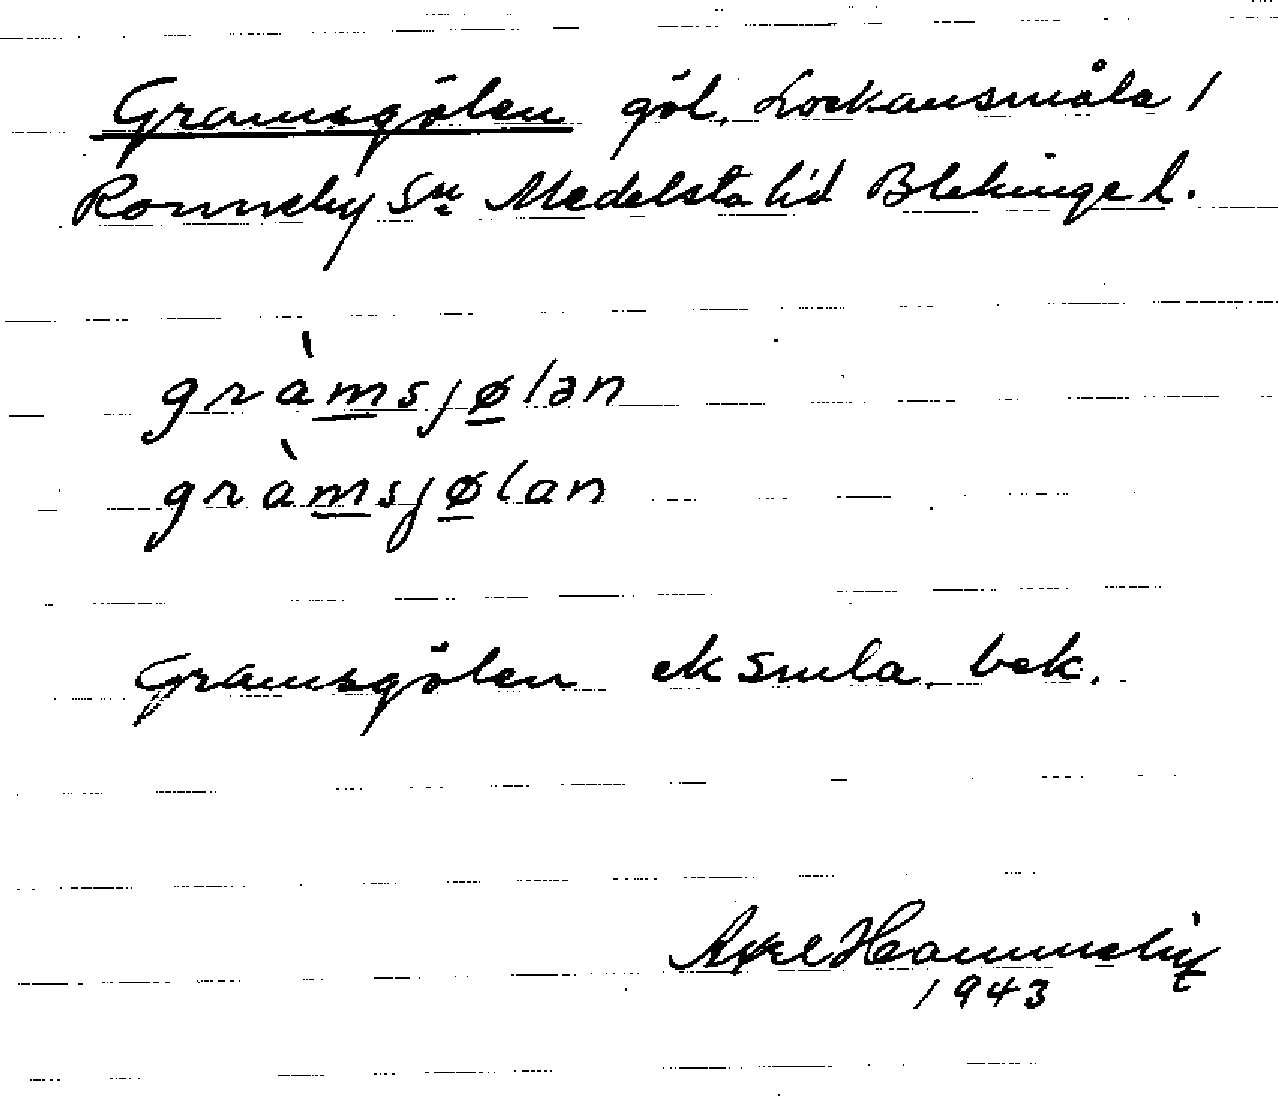 Gramsgölen göl, Lockansmåla 1
Ronneby Sn Medelsta hd Blekinge l.
gràmsjølən
gràmsjølan
Gramsgölen ek smla. bek.
Axel Hammelin
1943